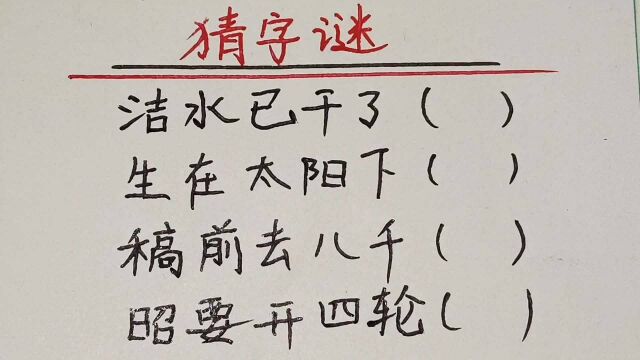 猜字谜
洁水已干了( )
生在太阳下( )
稿前去八千( )
昭要开四轮( )